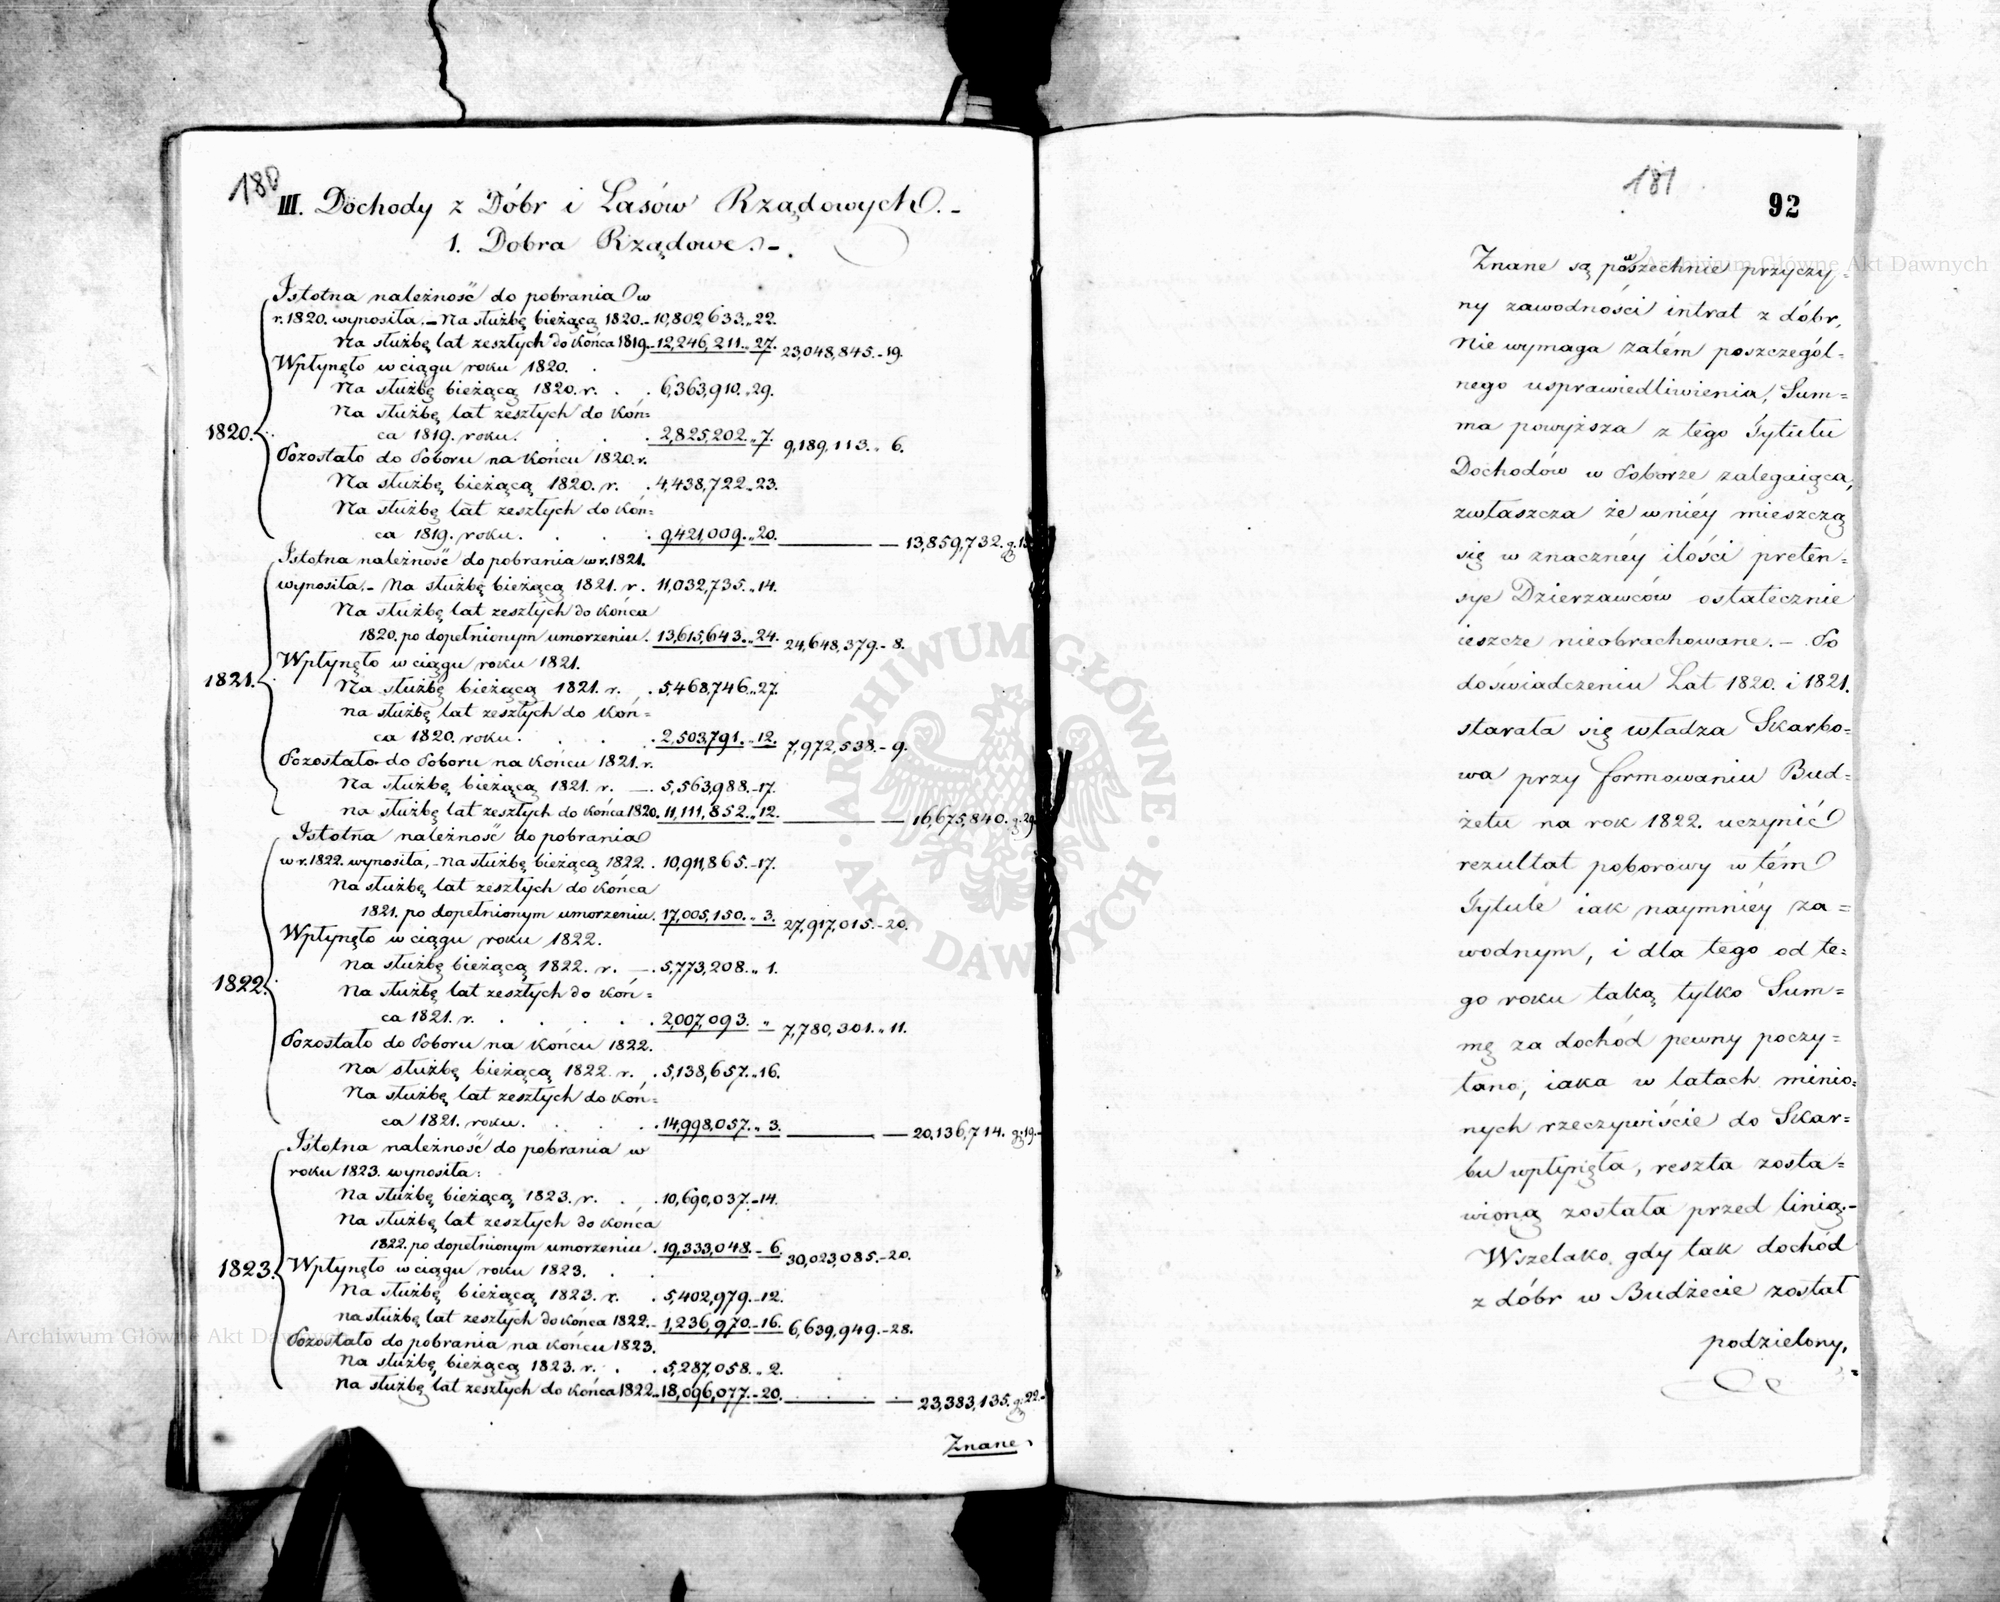 180
III. Dochody z Dóbr i Lasów Rządowych. -
1. Dobra Rządowe. -
Istotna należność do pobrania w
r. 1820. wynosiła. - Na służbę bieżącą 1820. - 10,802,633. „ 22.
Na służbę lat zeszłych do końca 1819. - 12,246,211. „ 27. 23,048,845. - 19.
Wpłynęło w ciągu roku 1820. .
Na służbę bieżącą 1820. r. . . 6,363,910. „ 29.
Na służbę lat zeszłych do koń=
ca 1819. roku. . . . 2,825,202. „ 7. 9,189,113. „ 6.
1820.
Pozostało do Poboru na końcu 1820. r.
Na służbę bieżącą 1820. r. . 4,438,722. „ 23.
Na służbę lat zeszłych do koń=
ca 1819. roku. . . . 9,421,009. „ 20. — — 13,859,732. g. 13
Istotna należność do pobrania w r. 1821.
wynosiła. - Na służbę bieżącą 1821. r. 11,032,735. „ 14.
Na służbę lat zeszłych do końca
1820. po dopełnionym umorzeniu. 13,615,643. „ 24. 24,648,379. - 8.
Wpłynęło w ciągu roku 1821.
1821.
Na służbę bieżącą 1821. r. . 5,468,746. „ 27.
na służbę lat zeszłych do koń=
ca 1820. roku. . . . 2,503,791. „ 12. 7,972,538. - 9.
Pozostało do Poboru na końcu 1821. r.
Na służbę bieżącą 1821. r. — . 5,563,988. - 17.
na służbę lat zeszłych do końca 1820. 11,111,852. „ 12. — — 16,675,840. g. 29.
Istotna należność do pobrania
w r. 1822. wynosiła, - Na służbę bieżącą 1822. . 10,911,865. - 17.
Na służbę lat zeszłych do końca
1821. po dopełnionym umorzeniu. 17,005,150. „ 3. 27,917,015. - 20.
Wpłynęło w ciągu roku 1822.
Na służbę bieżącą 1822. r. — . 5,773,208. „ 1.
1822.
Na służbę lat zeszłych do koń=
ca 1821. r. . . . . 2,007,093. „ 7,780,301. „ 11.
Pozostało do Poboru na końcu 1822.
Na służbę bieżącą 1822. r. . 5,138,657. „ 16.
Na służbę lat zeszłych do koń=
ca 1821. roku. . . . 14,998,057. „ 3. — — 20,136,714. g. 19. -
Istotna należność do pobrania w
roku 1823. wynosiła:
Na służbę bieżącą 1823. r. . . 10,690,037. - 14.
Na służbę lat zeszłych do końca
1822. po dopełnionym umorzeniu . 19,333,048. - 6. 30,023,085. - 20.
1823.
Wpłynęło w ciągu roku 1823. . .
Na służbę bieżącą 1823. r. . 5,402,979. - 12.
na służbę lat zeszłych do końca 1822. - 1,236,970. - 16. 6,639,949. - 28.
Pozostało do pobrania na końcu 1823.
Na służbę bieżącą 1823. r. . . 5,287,058. „ 2.
Na służbę lat zeszłych do końca 1822. „ 18,096,077. - 20. — — 23,383,135. g. 22. -
Znane
181
92
Znane są powszechnie przyczy=
ny zawodności intrat z dóbr,
Nie wymaga zatém poszczegól=
nego usprawiedliwienia, Sum=
ma powyższa z tego Tytułu
Dochodów w Poborze zalegaiąca,
zwłaszcza że w niéy mieszczą
się w znacznéy ilości preten=
sye Dzierzawców ostatecznie
ieszcze nieobrachowane. - Po
doświadczeniu Lat 1820. i 1821.
starała się władza Skarbo=
wa przy formowaniu Bud=
żetu na rok 1822. uczynić
rezultat poborowy w tém
Tytule iak naymniéy za=
wodnym, i dla tego od te=
go roku taką tylko Sum=
mę za dochód pewny poczy=
tano, iaka w latach minio=
nych rzeczywiście do Skar=
bu wpłynęła, reszta zosta=
wioną została przed linią. -
Wszelako, gdy tak dochód
z dóbr w Budżecie został
podzielony,
Archiwum Główne Akt Dawnych
Archiwum Główne Akt Dawnych
ARCHIWUM GŁÓWNE · AKT DAWNYCH ·